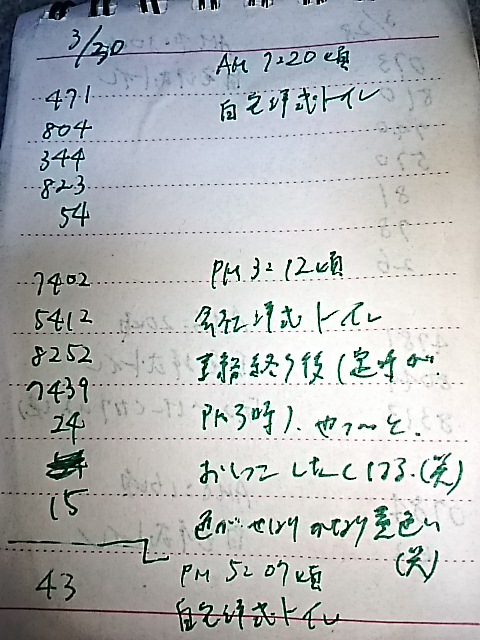 3/30
AM 7:20頃
471
自宅洋式トイレ
804
344
823
54
7402
PM 3:12頃
5412
会社洋式トイレ
8252
業務終り後(定時が
7439
PM3時)、やっと、
24
おしっこしたくなる。(笑)
15
色がやはりかなり黄色い
(笑)
43
PM 5:07頃
自宅洋式トイレ